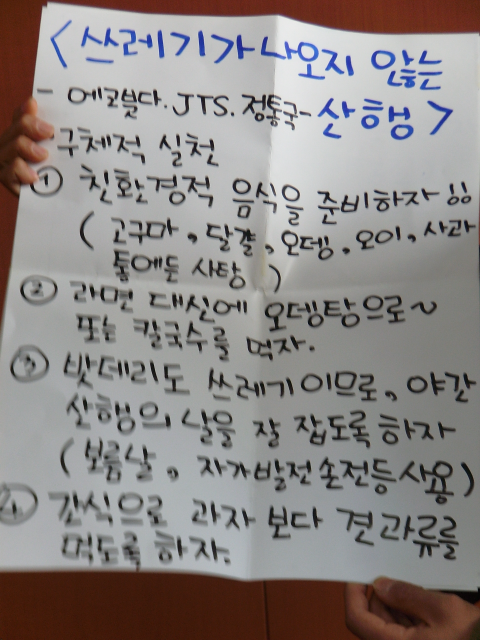 <쓰레기가 나오지 않는
- 에코붓다. JTS. 정토국- 산행>
구체적 실천
① 친환경적 음식을 준비하자!!
(고구마, 달걀, 오뎅, 오이, 사과
통에든 사탕)
② 라면 대신에 오뎅탕으로~
또는 칼국수를 먹자.
③ 밧데리도 쓰레기이므로, 야간
산행의 날을 잘 잡도록 하자
(보름날, 자가발전손전등사용)
④ 간식으로 과자보다 견과류를
먹도록 하자.